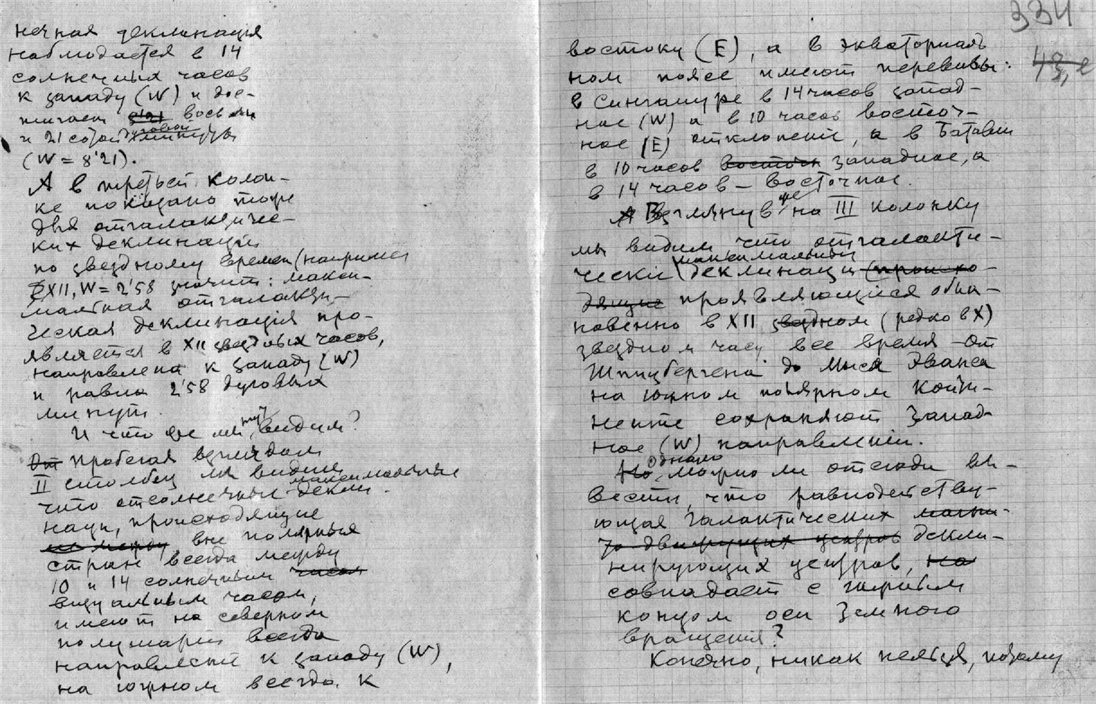 нечная деклинація
наблюдается в 14
солнечных часов
к западу (W) и дос-
тигает восьми
и 21 сотой дуговой минуты
(W = 8'21).
А в третьей колон-
ке показано тоже
для отгалактичес-
ких деклинацій
по звездному времени (например
XII, W = 2'58 значит: макси-
мальная отгалакти-
ческая деклинація про-
является в XII звездных часов,
направлена к западу (W)
и равна 2'58 дуговых
минут.
И что же мы тут видим?
От пробегая взглядом
II столбец мы видим
что отсолнечные максимальные декли-
наци, происходящие
вне полярных
стран всегда между
10 и 14 солнечным часом
часом,
имеют на северном
полушарии всегда
направленіе к западу (W),
на южном всегда к
334
востоку (E), а в экваториаль
ном поясе имеют перевивы:
43,
в Сингапуре в 14 часов запад-
ное (W) а в 10 часов восточ-
ное (E) отклоненіе, а в Батавии
в 10 часов восточн западное, а
в 14 часов — восточное.
А Взглянув же на III колонку
мы видим что отгалакти-
ческіе максимальныя деклинаци (происхо-
дящие проявляющіеся обык-
новенно в XII звездном (редко в X)
звездном часу все время от
Шпицбергена до мыса Эванса
на южном полярном конти-
ненте сохраняют запад-
ное (W) направленіе.
Но Однако можно ли отсюда вы-
вести, что равнодейству-
ющая галактических магни-
то движущих центров декли-
нирующих центров, на
совпадает с
концом оси земного
вращенія?
Конечно, никак нельзя, потому